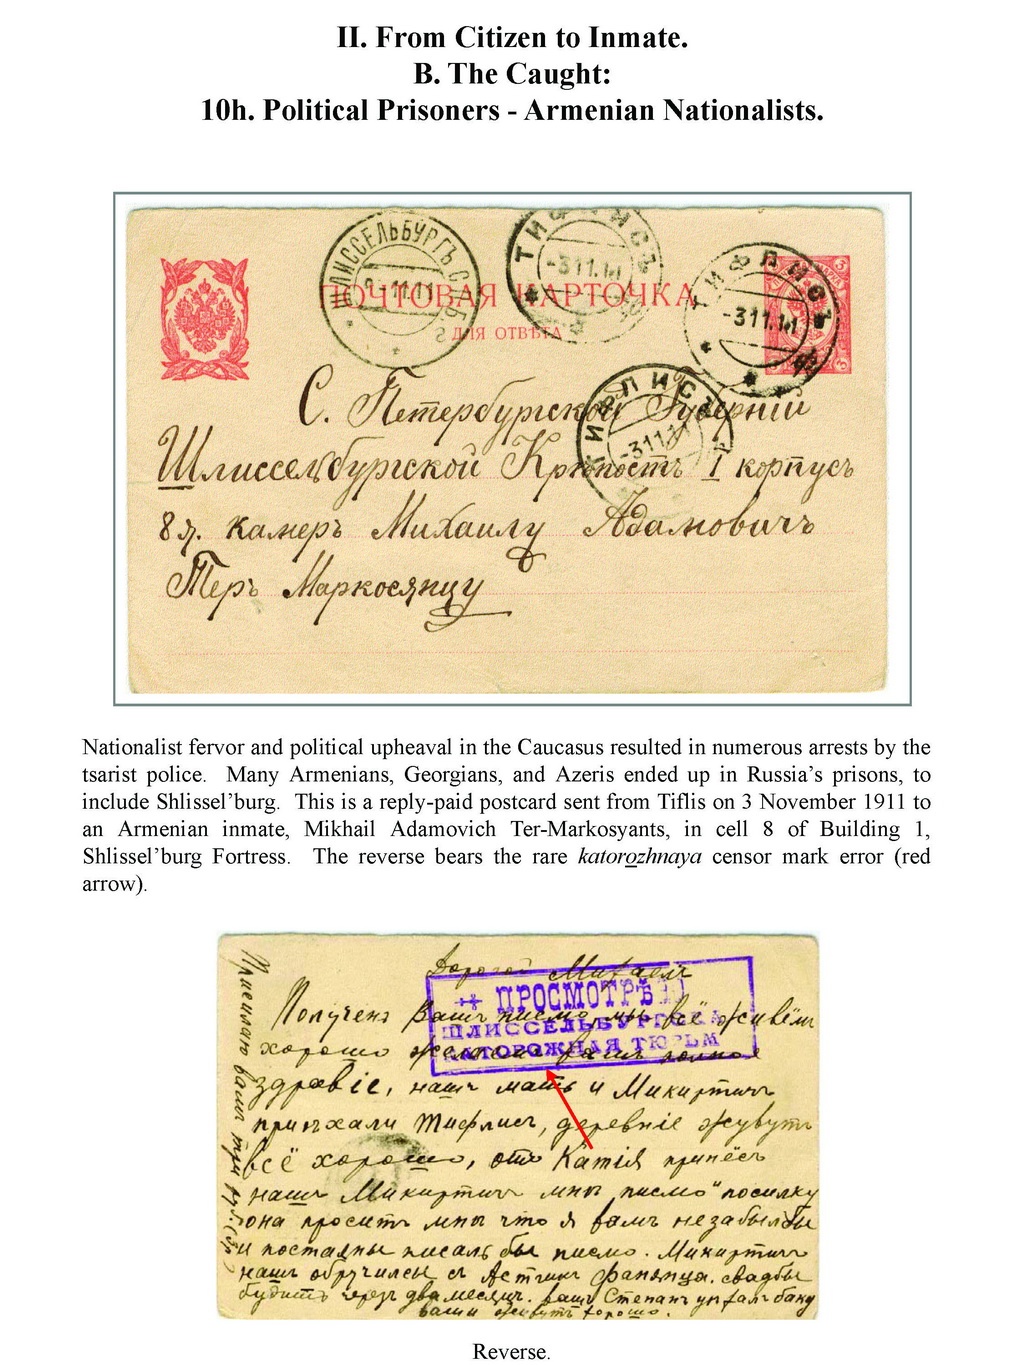 II. From Citizen to Inmate.
B. The Caught:
10h. Political Prisoners - Armenian Nationalists.
ШЛИССЕЛЬБУРГЪ С.П.Б.
2-11.11
ТИФЛИСЪ
-3 11.11
ТИФЛИСЪ
-3 11.11
3
ПОЧТОВАЯ КАРТОЧКА
ДЛЯ ОТВѢТА
ТИФЛИСЪ
-3 11.11
С. Петербургской Губерніи
Шлиссельбургской Крѣпость I корпусъ
8 я. камеръ Михаилу Адамовичъ
Теръ Маркосянцу
Nationalist fervor and political upheaval in the Caucasus resulted in numerous arrests by the
tsarist police. Many Armenians, Georgians, and Azeris ended up in Russia's prisons, to
include Shlissel'burg. This is a reply-paid postcard sent from Tiflis on 3 November 1911 to
an Armenian inmate, Mikhail Adamovich Ter-Markosyants, in cell 8 of Building 1,
Shlissel'burg Fortress. The reverse bears the rare katorozhnaya censor mark error (red
arrow).
Дорогой Михаель
ПРОСМОТРѢ
ШЛИССЕЛЬБУРГСКА
КАТОРОЖНАЯ ТЮРЬМ
Получено Ваше писмо, мы всё живёмъ
хорошо желаемъ вамъ полное
здравіе, нашъ мать и Микиртичъ
приѣхали Тифлисъ, деревніе живутъ
всё хорошо, отъ Катія принёсъ
нашъ Микиртичъ мнѣ писмо посилку
она проситъ мнѣ что я вамъ незабылъ бы
и писалъ бы писмо. Микиртичъ
нашъ обручился съ свадьбы
будитъ черезъ два месяцъ. вашъ Степанъ уѣхалъ баку
ваши живутъ хорошо.
Присилаю вамъ три руб. (3р)
Reverse.